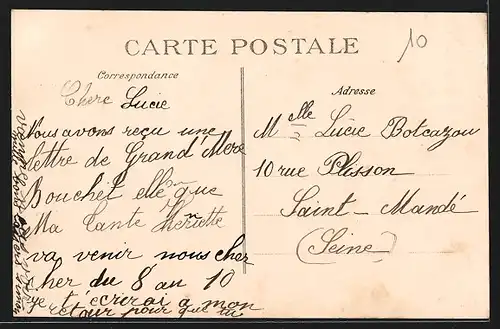 CARTE POSTALE
10
Correspondance
Chere Lucie
Vous avons reçu une
lettre de Grand'Mere
Bouchet elle que
Ma Tante Henriette
va venir nous cher
cher du 8 au 10
je t'écrirai a mon
retour pour que tu
Adresse
Melle Lucie Botcazou
10 rue Plisson
Saint-Mandé
(Seine)